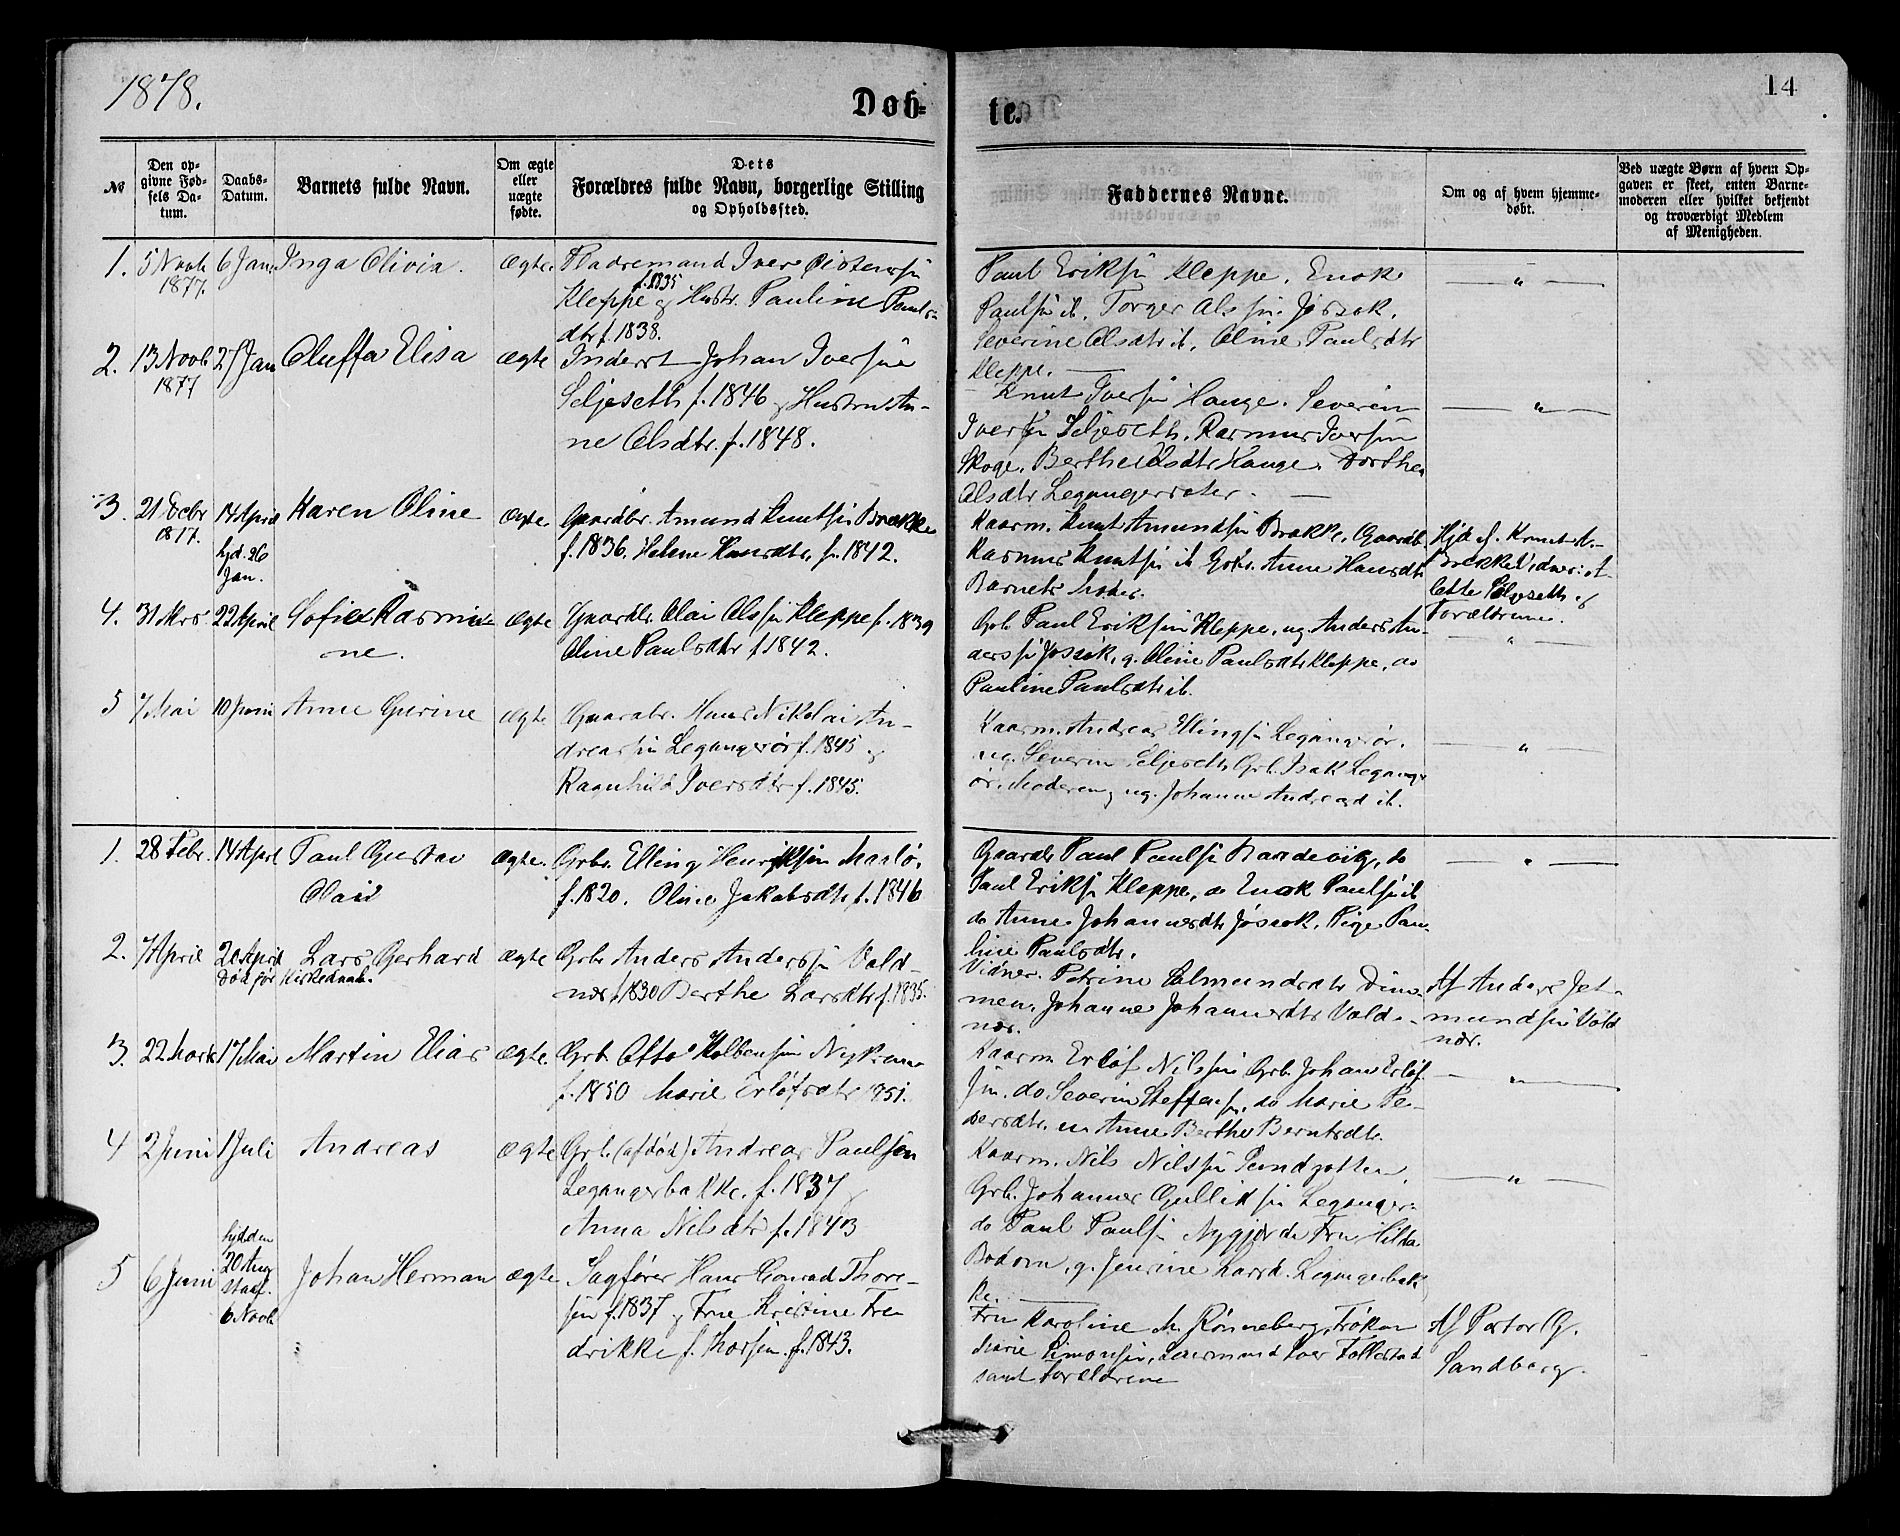 1878.
Døb-
te.
14
№
Den op-
givne Fød-
sels Da-
tum.
Daabs-
Datum.
Barnets fulde Navn.
Om ægte
eller
uægte
fødte.
Dets
Forældres fulde Navn, borgerlige Stilling
og Opholdssted.
Faddernes Navne.
Om og af hvem hjemme-
døbt.
Ved uægte Børn af hvem Op-
gaven er skeet, enten Barne-
moderen eller hvilket bekjendt
og troværdigt Medlem
af Menigheden.
1.
5 Novb
1877.
6 Jan
Inga Olivia.
ægte.
Pladsemand Iver
f. 1835
Kleppe og Hustr. Pauline Pauls-
dtr f. 1838.
Paul Eriksen Kleppe. Enok
Paulsen ib. Torger Olssen Jøsok.
Severine Olsdtr ib. Oline Paulsdtr
Kleppe.
2.
13 Novb
1877
27 Jan
Oluffa Elisa
ægte
Inderst Johan Iversen
Seljeseth f. 1846 og Hustru An-
ne Olsdtr. f. 1848.
Knut Iversen Hauge. Severin
Iversen Seljeseth. Rasmus Iversen
Skoge. Berthe Hauge. Dorthea
Olsdtr Leganger
3.
21 Decbr
1877.
14 April
hjd. 26
Jan.
Karen Oline
Ægte
Gaardbr. Amund Knutsen Brække
f. 1836. Helene Hansdtr. f. 1842.
Kaarm. Knut Amundsen Brække. Gaardb.
Rasmus Knutsen ib Anne Hansdtr
Barnets Moder.
Hjd af. Knut A.
Brække Vidner:
Seljeseth og
Forældrene.
4.
31 Mrs
22 April
Sofie Rasmi-
ne.
Ægte
Gaardbr. Olai Olssen Kleppe f. 1839
Oline Paulsdtr f. 1842.
Grb. Paul Eriksen Kleppe. ug. Anders An-
derssen Jøsok, g. Oline Paulsdtr Kleppe, do
Pauline Paulsdtr ib.
5
7 Mai
10 Juni
Anne Gurine
ægte
Gaardbr. Hans Nikolai An-
dreassen Legangerør f. 1845 og
Ragnhild Iversdtr f. 1845.
Kaarm. Andreas Ellingsen Legangerør.
ug. Severin Seljeseth Grb. Isak Leganger-
ør. Moderen og ug. Johanne Andreasd ib.
1.
28 Febr.
14 April
Paul Gustav
Olai
ægte.
Grbr. Elling Henriksen Maalø.
f. 1820. Oline Jakobsdtr f. 1846
Gaardb Paul Paulsen Nordvig, do
Paul Eriksen Kleppe, do Enok Paulsen ib
do Anne Johannesdtr Jøsok. Pige Pau-
line Paulsdtr.
2.
7 April
20 April
Død før Kirkedaab.
Lars Gerhard
ægte
Grbr Anders Anderssen Vold-
nær f. 1830 Berthe Larsdtr f. 1835.
Vidner. Petrine
Johanne Johannesdtr Vold-
nær.
Af Anders Jet-
mundsen Vold
nær.
3.
22 Marts
17 Mai
Martin Elias
ægte
Grb. Otto Kolbensen
f. 1850 Marie Erløfsdtr 1851.
Kaarm. Erløf Nilssen Grb. Johan Erløf-
sen. do Severin Steffensen, do Marie Pe-
dersdtr. Anne Berthe Berntsdtr.
4
2 Juni
1 Juli
Andreas
ægte
Grb. (afdød) Andreas Paulsen
Legangerbakke. f. 1837 og
Anna Nilsdtr f. 1843
Kaarm. Nils Nilssen Sundgotten.
Grb. Johannes Gulliksen Leganger-
do Paul Paulsen Nygjerde Fru Hilda
Bodom, g. Jenrine Larsd. Legangerbak
ke.
5
6 Juni
hjd den
20 Aug
stadf.
6 Novb
Johan Herman
ægte
Sagfører Hans Conrad Thore-
sen f. 1837 og Frue Kristine Fre
drikke f. Thorsen. f. 1843.
Fru Karoline M. Rønneberg, Frøken
Marie Simonsen, Lensmand Iver Follestad
samt Forældrene
Af Pastor G.
Sandberg.